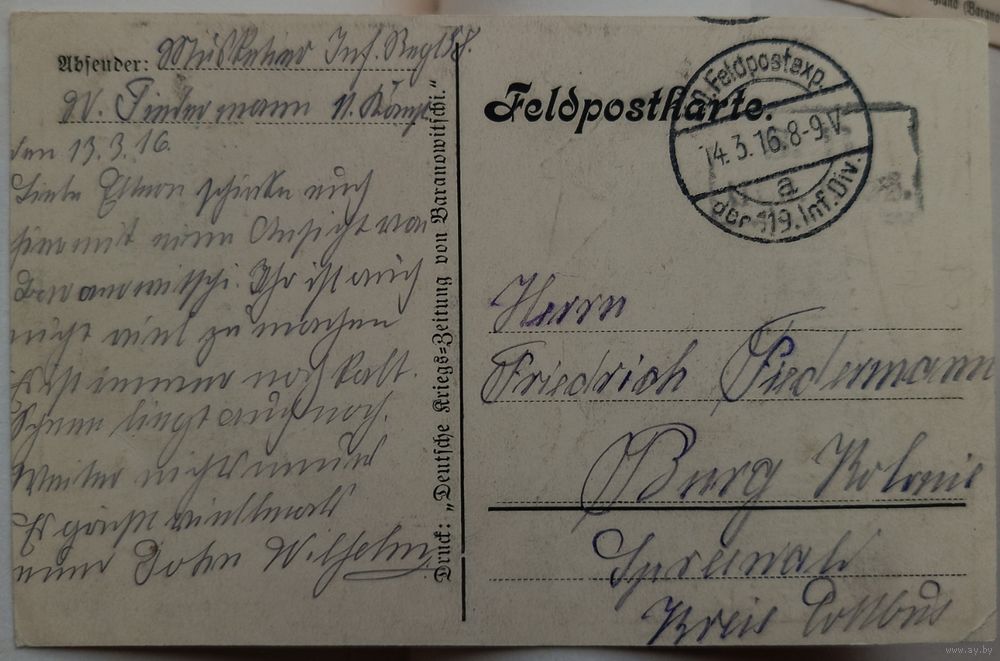 Absender: Musketier Inf. Regt 58.
W. Piedermann 11. Komp.
den 13.3.16.
Liebe Eltern schicke euch
hiermit eine Ansicht von
Baranowitschi. Ihr ist auch
nicht viel zu machen
Es ist immer noch kalt.
Schnee liegt auch noch.
Weiter nichts neues
Es grüßt vielmals
euer Sohn Wilhelm
Druck: „Deutsche Kriegs=Zeitung von Baranowitschi."
Feldpostkarte.
Feldpostexp.
14.3.16.8-9V.
a
der 119. Inf. Div.
Herrn
Friedrich Piedermann
Burg Kolonie
Spreewald
Kreis Cottbus
www.ay.by